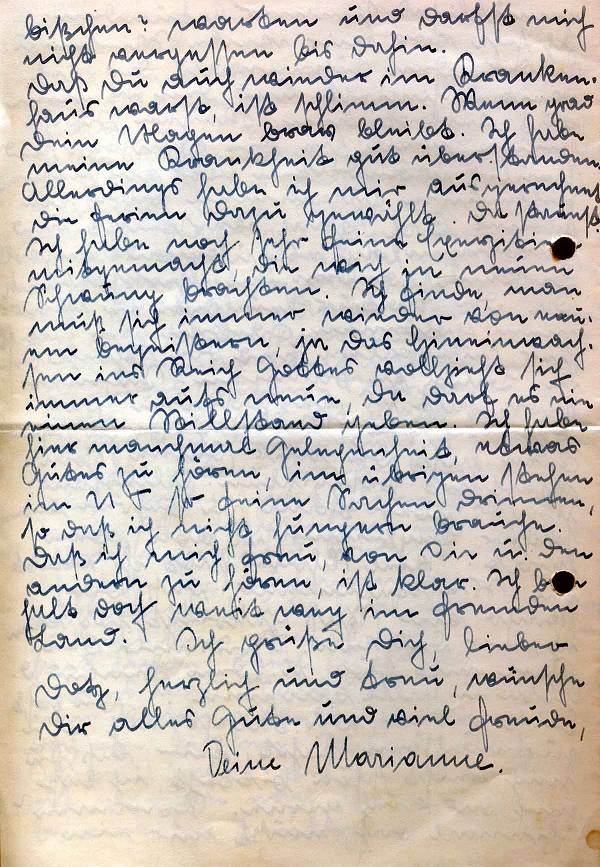 bißchen? warten und darfst mich
nicht vergessen bis dahin.
Daß Du auch wieder im Kranken-
haus warst, ist schlimm. Wenn grad
Dein Magen brav bleibt. Ich habe
meine Krankheit gut überstanden.
Allerdings habe ich mir ausgerechnet
die Ferien dazu gewählt. Da
Ich habe noch sehr feine Exerzitien
mitgemacht, die mich in neuen
Schwung brachten. Ich finde, man
muß sich immer wieder von neu-
em begeistern, ja das Hineinwach-
sen ins Reich Gottes vollzieht sich
immer aufs neue, da darf es nie
einen Stillstand geben. Ich habe
hier manchmal Gelegenheit, etwas
Gutes zu hören, im übrigen stehen
im NT so feine Sachen drinnen,
so daß ich nicht hungern brauche.
Daß ich mich freu, von Dir u. den
andern zu hören, ist klar. Ich bin
halt doch weit weg im fremden
Land. Ich grüße Dich, lieber
Datz, herzlich und treu, wünsche
Dir alles Gute und viel Freude,
Deine Marianne.